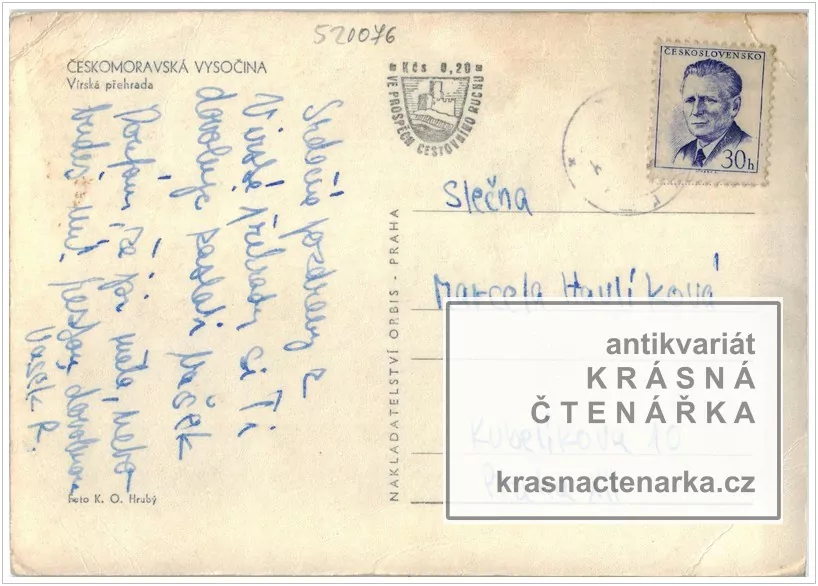 520076
ČESKOMORAVSKÁ VYSOČINA
Vírská přehrada
Srdečné pozdravy z
Vírské přehrady si Ti
dovoluje zaslati Vašek
Doufám, že jsi měla, nebo
budeš mít hezkou dovolenou
Vašek R.
Foto K. O. Hrubý
NAKLADATELSTVÍ ORBIS - PRAHA
Kčs 0,20
VE PROSPĚCH CESTOVNÍHO RUCHU
ČESKOSLOVENSKO
30h
Slečna
Marcela Havlíková
Kubelíkova 10
antikvariát
KRÁSNÁ
ČTENÁŘKA
krasnactenarka.cz